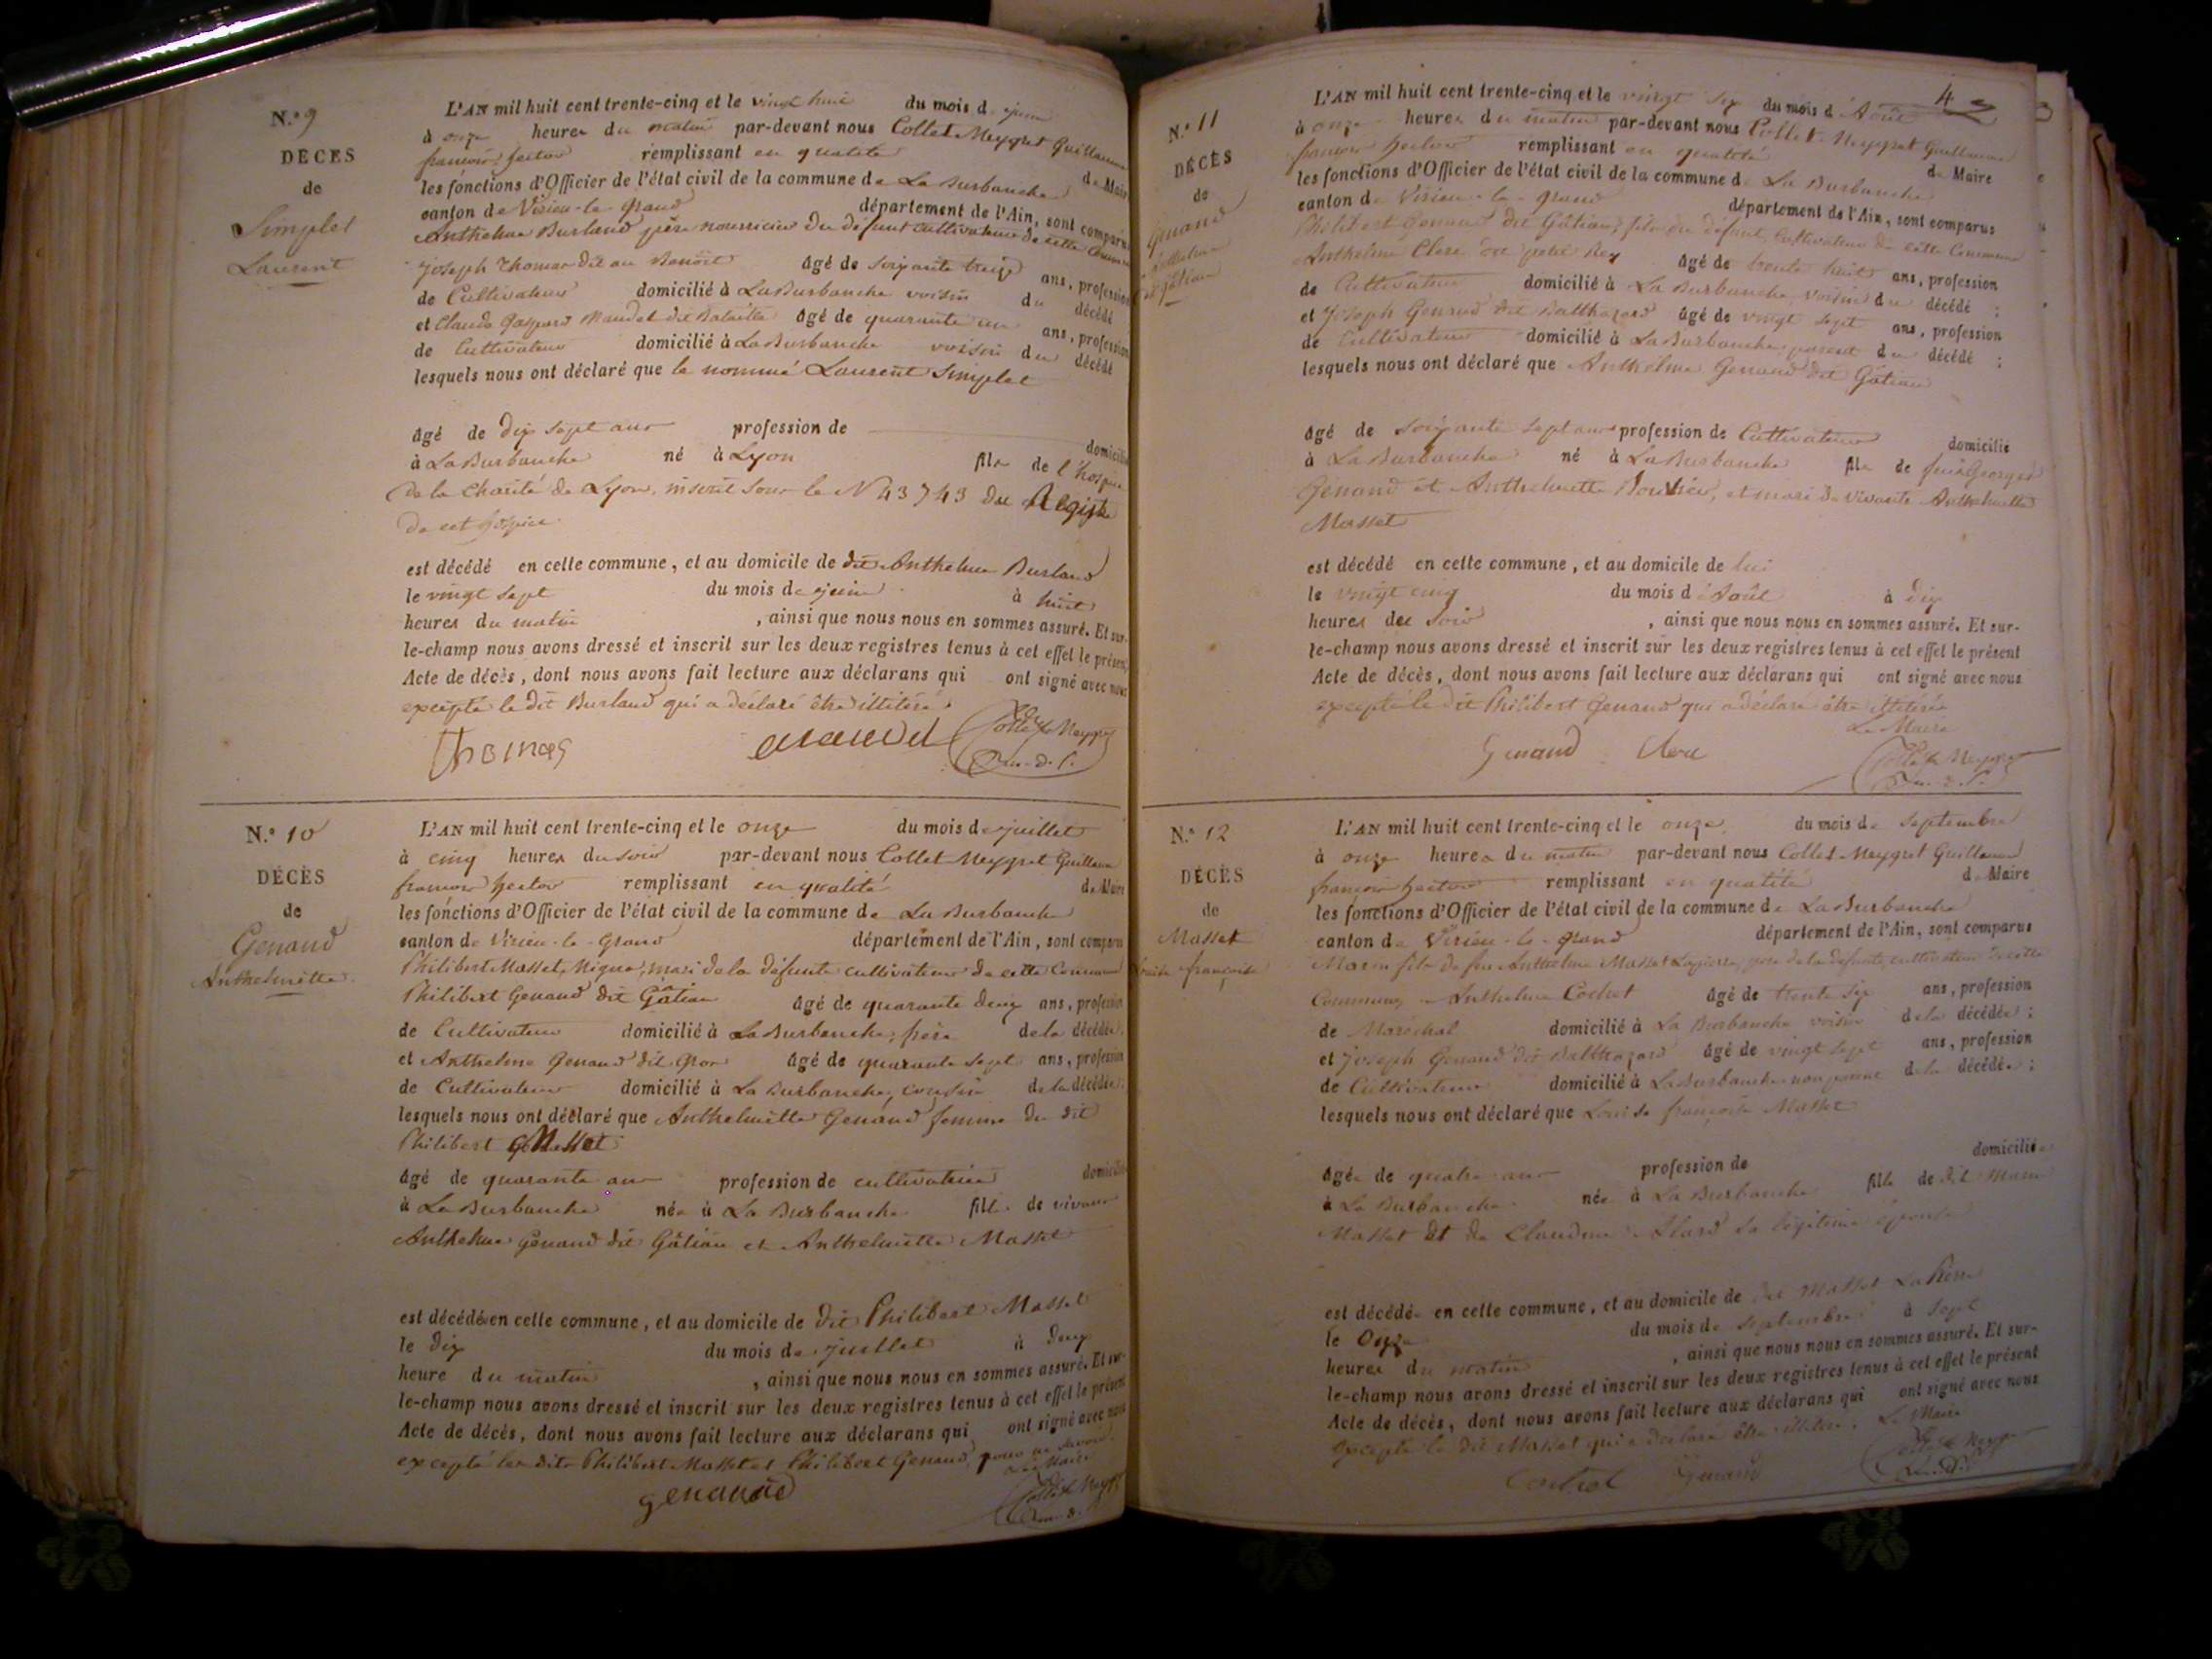 N.° 9
DÉCÈS
de
Simplet
Laurent
L'AN mil huit cent trente-cinq et le vingt huit du mois de juin
à onze heures du matin par-devant nous Collet-Meygret Guillaume
françois hector remplissant en qualité de Maire
les fonctions d'Officier de l'état civil de la commune de La Burbanche
canton de Virieu-le-grand département de l'Ain, sont comparus
Anthelme Burland père nourricier du défunt cultivateur de cette Commune
joseph Thomas dit au Benoit âgé de soixante treize ans, profession
de Cultivateur domicilié à La Burbanche voisin du décédé
et Claude Gaspard Mandet dit Bataille âgé de quarante un ans, profession
de Cultivateur domicilié à La Burbanche voisin du décédé
lesquels nous ont déclaré que le nommé Laurent Simplet
âgé de dix sept ans profession de domicilié
à La Burbanche né à Lyon fils de l'hospice
de la Charité de Lyon, inscrit sous le N° 43743 du Registre
de cet hospice
est décédé en cette commune, et au domicile de dit Anthelme Burland
le vingt sept du mois de juin à huit
heures du matin , ainsi que nous nous en sommes assuré. Et sur-
le-champ nous avons dressé et inscrit sur les deux registres tenus à cet effet le présent
Acte de décès, dont nous avons fait lecture aux déclarans qui ont signé avec nous
excepté le dit Burland qui a déclaré être illitéré.
Thomas Collet Meygret
N.° 10
DÉCÈS
de
Genand
Anthelmette
L'AN mil huit cent trente-cinq et le onze du mois de juillet
à cinq heures du soir par-devant nous Collet-Meygret Guillaume
françois hector remplissant en qualité de Maire
les fonctions d'Officier de l'état civil de la commune de La Burbanche
canton de Virieu-le-Grand département de l'Ain, sont comparus
Philibert Masset, mari de la défunte cultivateur de cette Commune
Philibert Genand dit Gâtian âgé de quarante deux ans, profession
de Cultivateur domicilié à La Burbanche, frère de la décédée;
et Anthelme Genand dit Gros âgé de quarante sept ans, profession
de Cultivateur domicilié à La Burbanche, cousin de la décédée;
lesquels nous ont déclaré que Anthelmette Genand femme du dit
Philibert Masset
âgé de quarante ans profession de cultivatrice domicilié
à La Burbanche née à La Burbanche fille de vivans
Anthelme Genand dit Gâtian et Anthelmette Masset
est décédée en cette commune, et au domicile de dit Philibert Masset
le dix du mois de juillet à deux
heure du matin , ainsi que nous nous en sommes assuré. Et sur-
le-champ nous avons dressé et inscrit sur les deux registres tenus à cet effet le présent
Acte de décès, dont nous avons fait lecture aux déclarans qui ont signé avec nous
excepté les dits Philibert Masset et Philibert Genand, pour ne savoir.
Le Maire
genand Collet Meygret
N.° 11
DÉCÈS
de
Genand
Anthelme
dit gâtian
L'AN mil huit cent trente-cinq et le vingt six du mois d'Août
à onze heures du matin par-devant nous Collet-Meygret Guillaume
françois hector remplissant en qualité de Maire
les fonctions d'Officier de l'état civil de la commune de La Burbanche
canton de Virieu-le-grand département de l'Ain, sont comparus
Philibert Genand dit Gâtian, fils du défunt, Cultivateur de cette Commune
Anthelme Clerc dit petit Rey âgé de trente huit ans, profession
de Cultivateur domicilié à La Burbanche voisin du décédé ;
et Joseph Genand dit Balthazard âgé de vingt sept ans, profession
de Cultivateur domicilié à La Burbanche parent du décédé ;
lesquels nous ont déclaré que Anthelme Genand dit Gâtian
âgé de soixante sept ans profession de Cultivateur domicilié
à La Burbanche né à La Burbanche fils de feu Georges
Genand et Anthelmette, et mari de vivante Anthelmette
Masset
est décédé en cette commune, et au domicile de lui
le vingt cinq du mois d'Août à dix
heures du soir , ainsi que nous nous en sommes assuré. Et sur-
le-champ nous avons dressé et inscrit sur les deux registres tenus à cet effet le présent
Acte de décès, dont nous avons fait lecture aux déclarans qui ont signé avec nous
excepté le dit Philibert Genand qui a déclaré être illitéré
Le Maire
Genand Clerc Collet Meygret
N.° 12
DÉCÈS
de
Masset
Louise françoise
L'AN mil huit cent trente-cinq et le onze du mois de septembre
à onze heures du matin par-devant nous Collet-Meygret Guillaume
françois hector remplissant en qualité de Maire
les fonctions d'Officier de l'état civil de la commune de La Burbanche
canton de Virieu-le-grand département de l'Ain, sont comparus
Marin fils de feu Anthelme Masset Lapierre, père de la défunte, cultivateur de cette
Commune, Anthelme Cochet âgé de trente six ans, profession
de Maréchal domicilié à La Burbanche voisin de la décédée ;
et joseph Genand dit Balthazard âgé de vingt sept ans, profession
de Cultivateur domicilié à La Burbanche non parent de la décédée ;
lesquels nous ont déclaré que Louise françoise Masset
âgée de quatre ans profession de domiciliée
à La Burbanche née à La Burbanche fille de dit Marin
Masset et de Claudine Alard sa légitime épouse
est décédée en cette commune, et au domicile de dit Masset La Pierre
le Onze du mois de septembre à sept
heures du matin , ainsi que nous nous en sommes assuré. Et sur-
le-champ nous avons dressé et inscrit sur les deux registres tenus à cet effet le présent
Acte de décès, dont nous avons fait lecture aux déclarans qui ont signé avec nous
excepté le dit Masset qui a déclaré être illitéré. Le Maire
Genand Collet Meygret